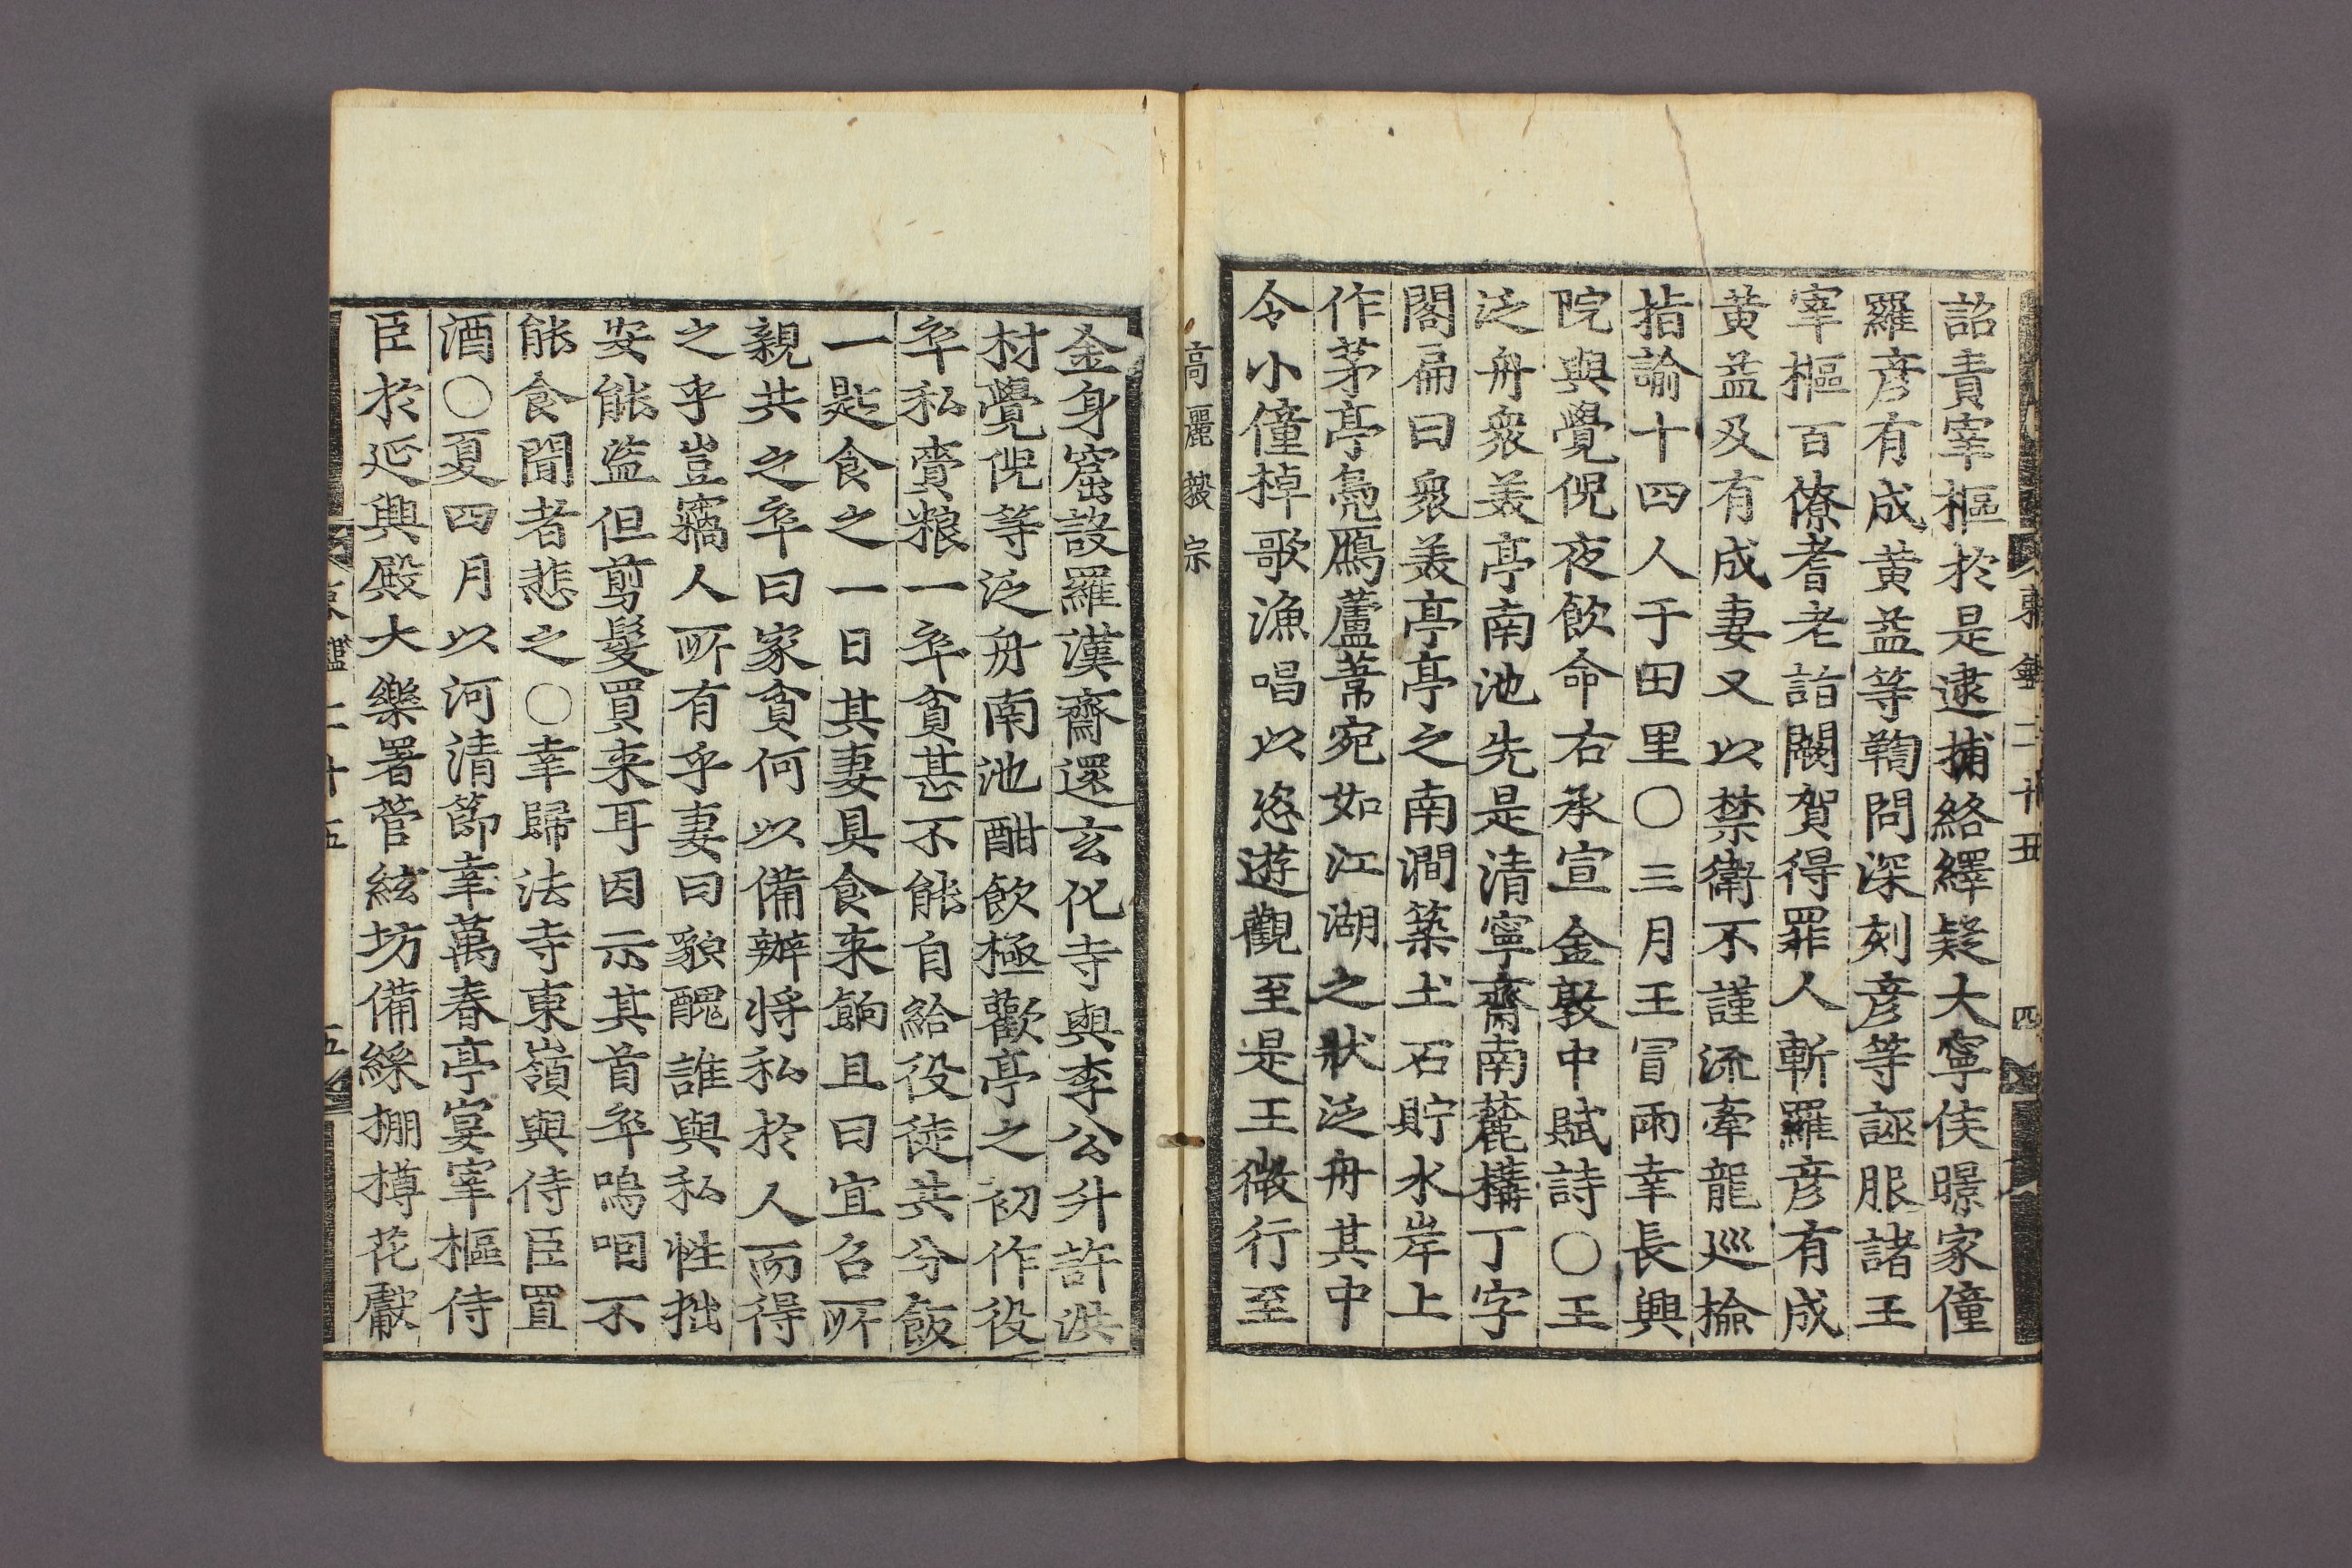 東鑑二十五 四
詔責宰樞於是逮捕絡繹疑大寧侯暻家僮
羅彦有成黄益等鞫問深刻彦等誣服諸王
宰樞百僚耆老詣闕賀得罪人斬羅彦有成
黄益及有成妻又以禁衛不謹流牽龍巡撿
指諭十四人于田里〇三月王冐雨幸長興
院與覺倪夜飮命右承宣金敦中賦詩〇王
泛舟衆美亭南池先是清寧齋南麓構丁字
閣扁曰衆美亭亭之南澗築土石貯水岸上
作茅亭鳬鴈蘆葦宛如江湖之狀泛舟其中
令小僮棹歌漁唱以恣遊觀至是王微行至
高麗毅宗
金身窟設羅漢齋還玄化寺與李公升許洪
材覺倪等泛舟南池酣飮極歡亭之初作役
卒私賫粮一卒貧甚不能自給役徒共分飯
一匙食之一日其妻具食来餉且曰宜召所
親共之卒曰家貧何以備辦將私於人而得
之乎豈竊人所有乎妻曰貌醜誰與私性拙
安能盗但剪髮買来耳因示其首卒嗚咽不
能食聞者悲之〇幸歸法寺東嶺與侍臣置
酒〇夏四月以河清節幸萬春亭宴宰樞侍
臣於延興殿大樂署管絃坊備綵棚樽花獻
東鑑二十五 五